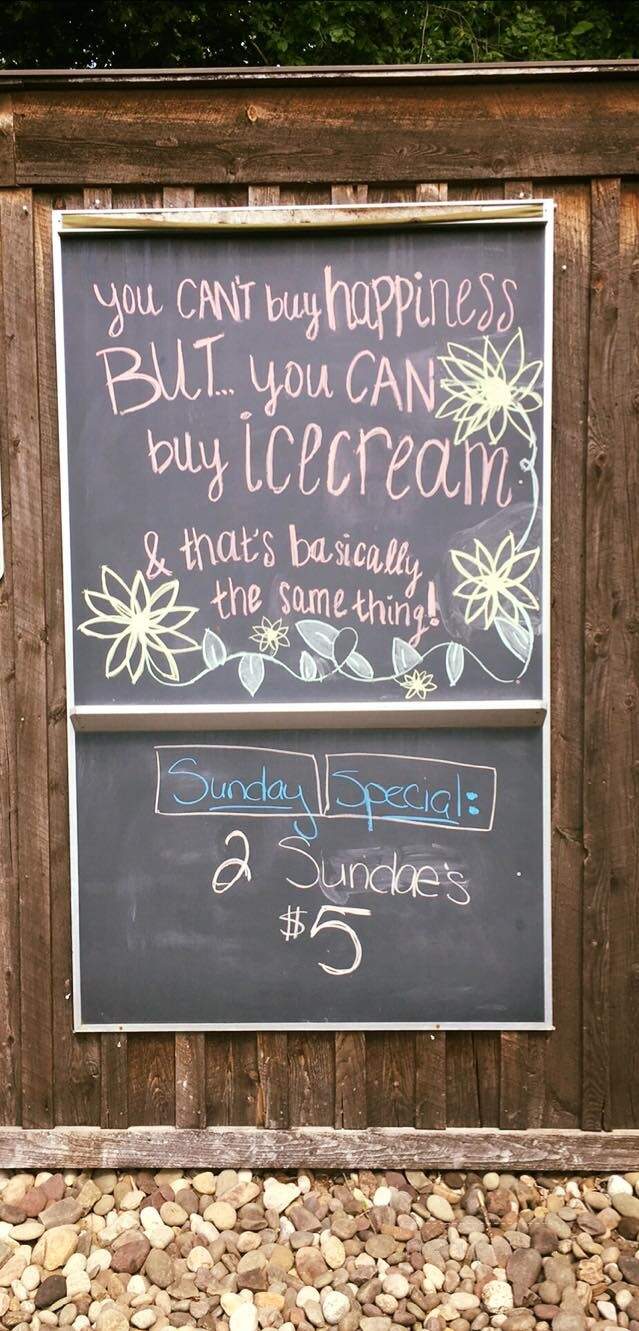 you CAN'T buy happiness
BUT... you CAN
buy icecream
& that's basically
the same thing!
Sunday Special:
2 Sundae's
$5